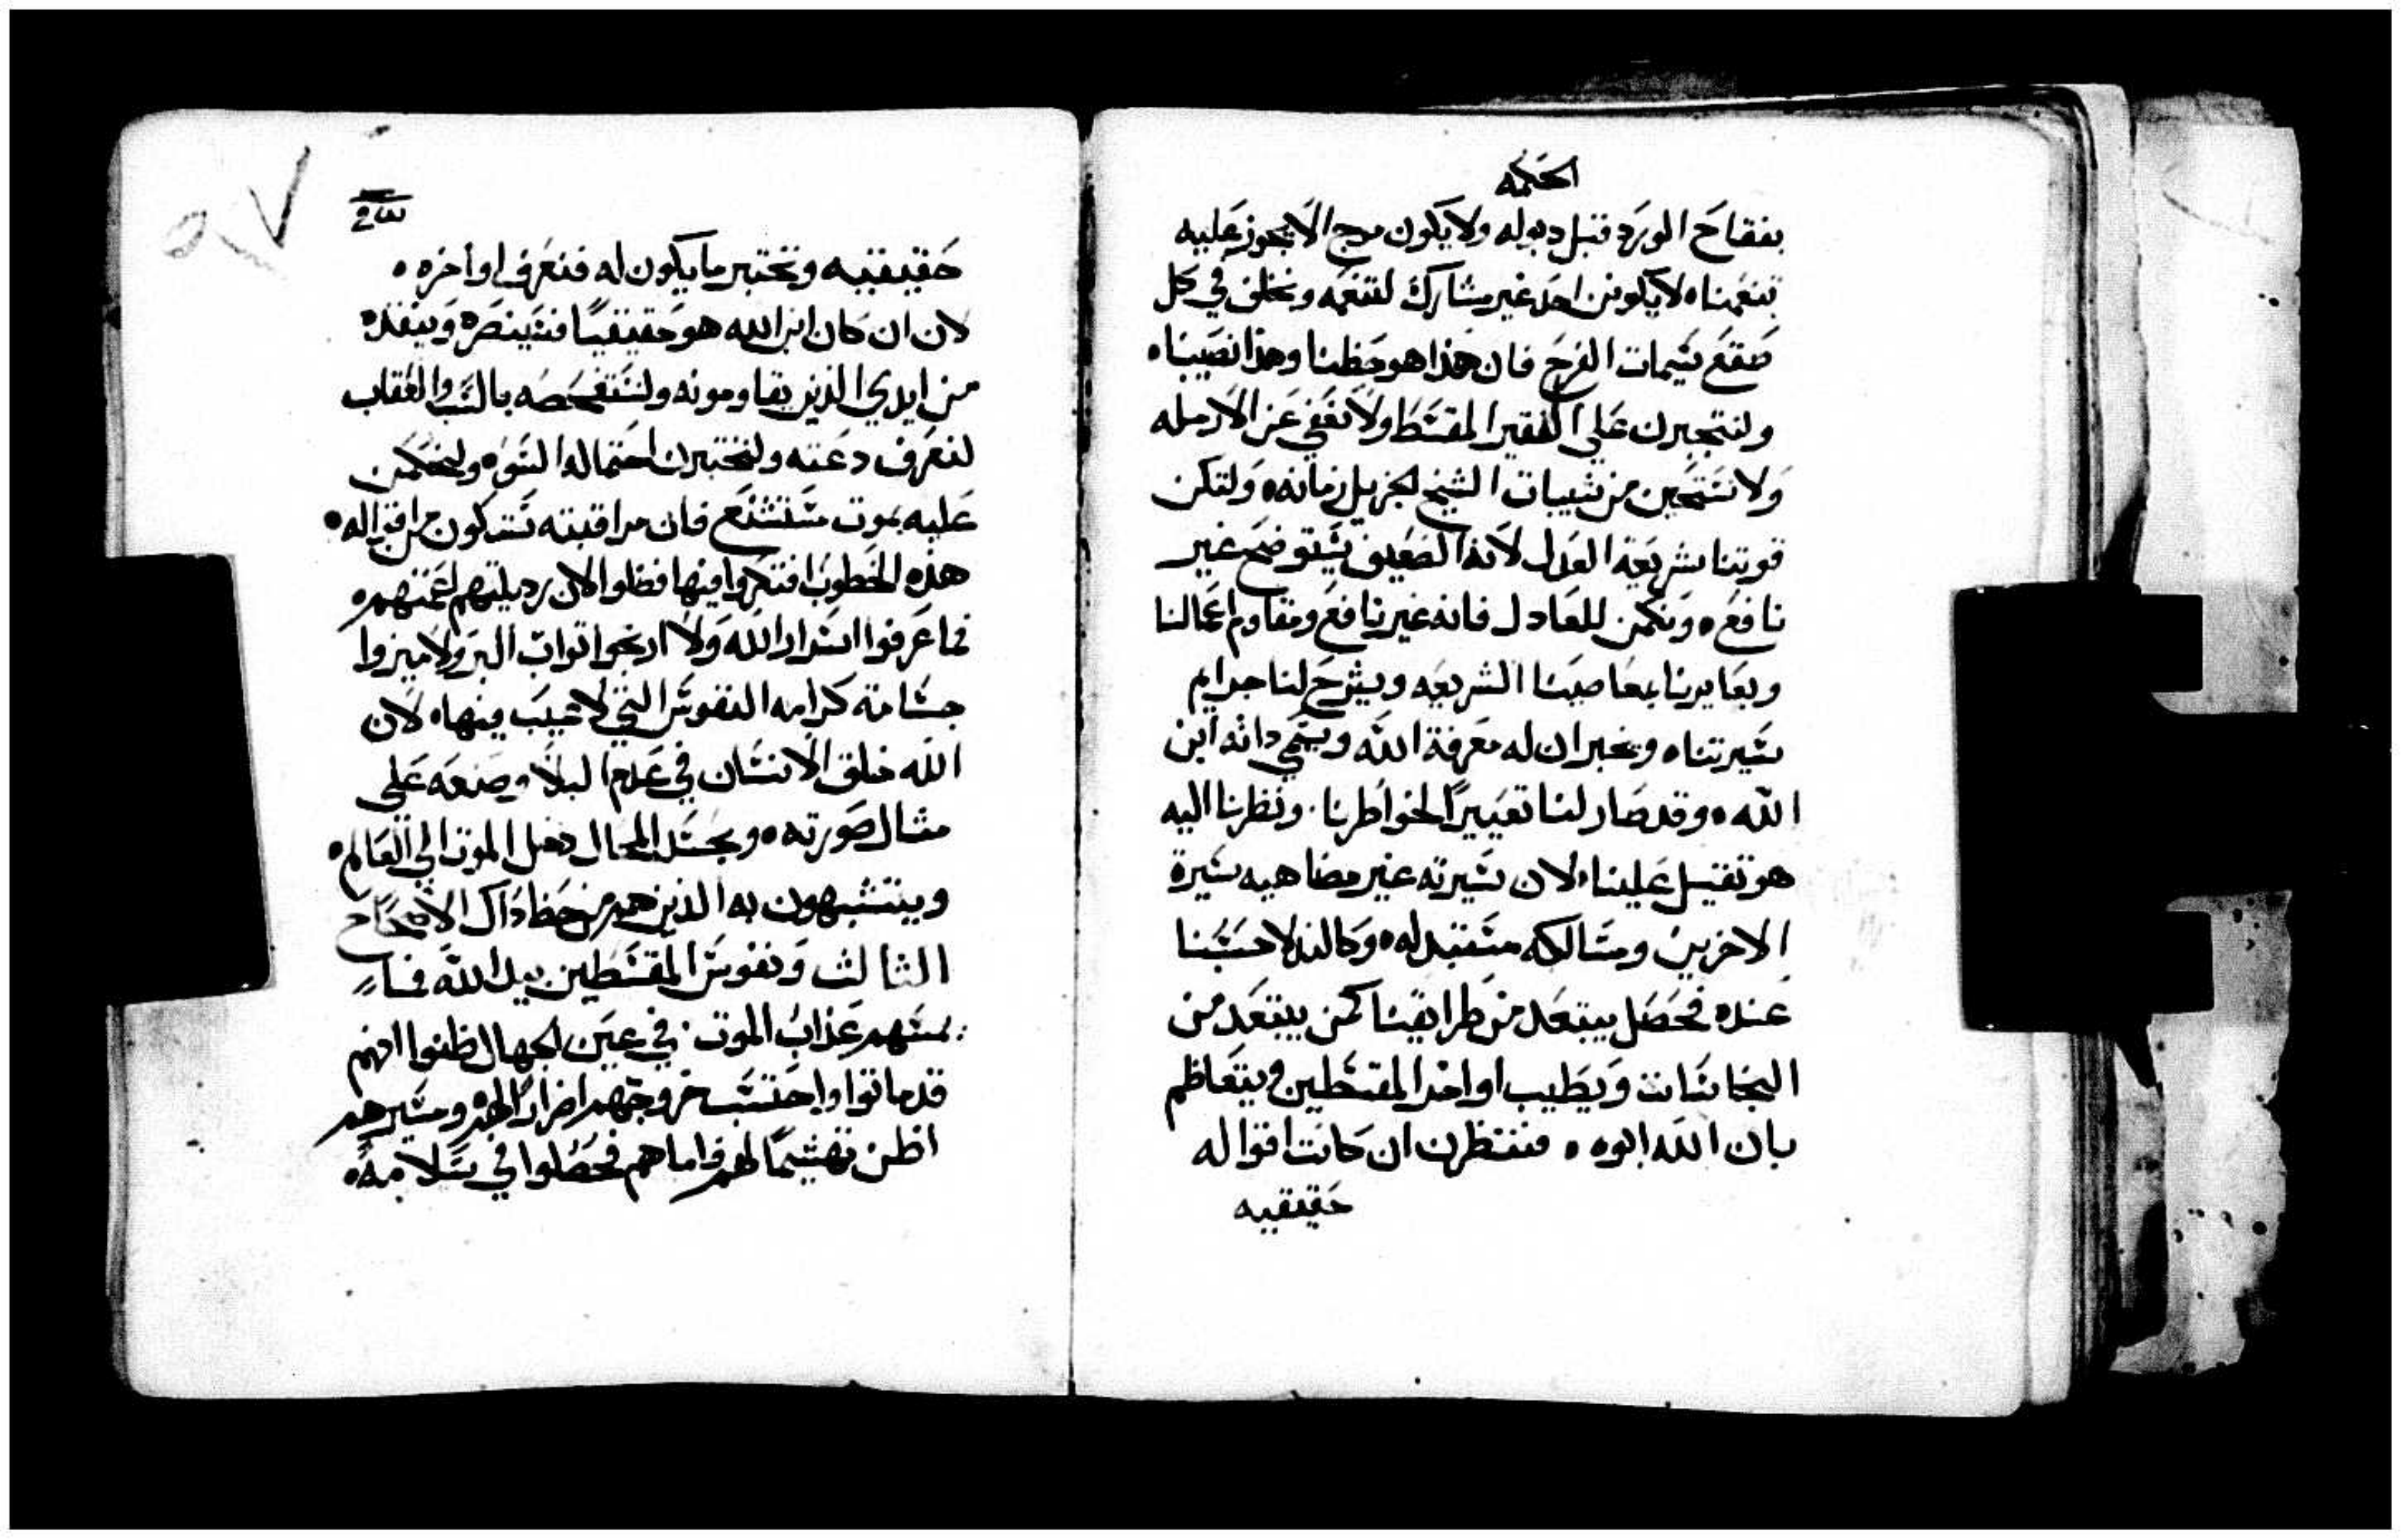 الحكمه
بفقاح الورد قبل دبوله ولا يكون مرج الا يجوز عليه
تنعمنا، لا يكونن احد غير مشارك لتنعمه ونخلف في كل
صقع سيمات الفرح فان هذا هو حظنا وهذا نصيبنا،
ولنتجبرن علي الفقير المقسط ولا نعفي عن الارمله
ولا نستحين من شيبات الشيخ الجزيل زمانه، ولتكن
قوتنا شريعة العدل لان الضعيف يستوضح غير
نافع، ونكمن للعادل فانه غير نافع ومقاوم اعمالنا
ويعايرنا بمعاصينا الشريعه ويشرح لنا جرايم
سيرتنا، ويخبر ان له معرفة الله ويسمي ذاته ابن
الله، وقد صار لنا تعييرًا لخواطرنا، ونظرنا اليه
هو ثقيل علينا، لان سيرته غير مضاهيه سيرة
الاخرين ومسالكه متبدله، وكالندلا حسبنا
عنده فحصل يبتعد من طرايقنا كمن يبتعد من
النجاسات ويطيب اواخر المقسطين ويتعاظم
بان الله ابوه، فننظرن ان كانت اقواله
حقيقيه
حقيقيه ونختبر ما يكون له فنعرف اواخره،
لان ان كان ابن الله هو حقيقيًا فسينصره وينقذه
من ايدي الذين يقاومونه ولنستفحصه بالسب والعقاب
لنعرف دعته ولنختبرن احتماله السوء، ولنحكمن
عليه بموت مستشنع فان مراقبته ستكون من اقواله،
هذه الخطوب افتكروا فيها فضلوا لان رديلتهم اعمتهم،
فما عرفوا اسرار الله ولا ارتجوا ثواب البر ولا ميزوا
جسامة كرامه النفوس التي لا عيب فيها، لان
الله خلق الانسان في عدم البلا وصنعه علي
مثال صورته، وبحسد المحال دخل الموت الي العالم،
ويتشبهون به الذين هم من حظ ذاك الاصحاح
الثالث ونفوس المقسطين بيد الله فما
يمسهم عذاب الموت، في عين الجهال ظنوا انهم
قد ماتوا واحتسب خروجهم اضرارًا لهم، ومسيرهم
اظن تهشيمًا لهم، فاما هم فحصلوا في سلامه،